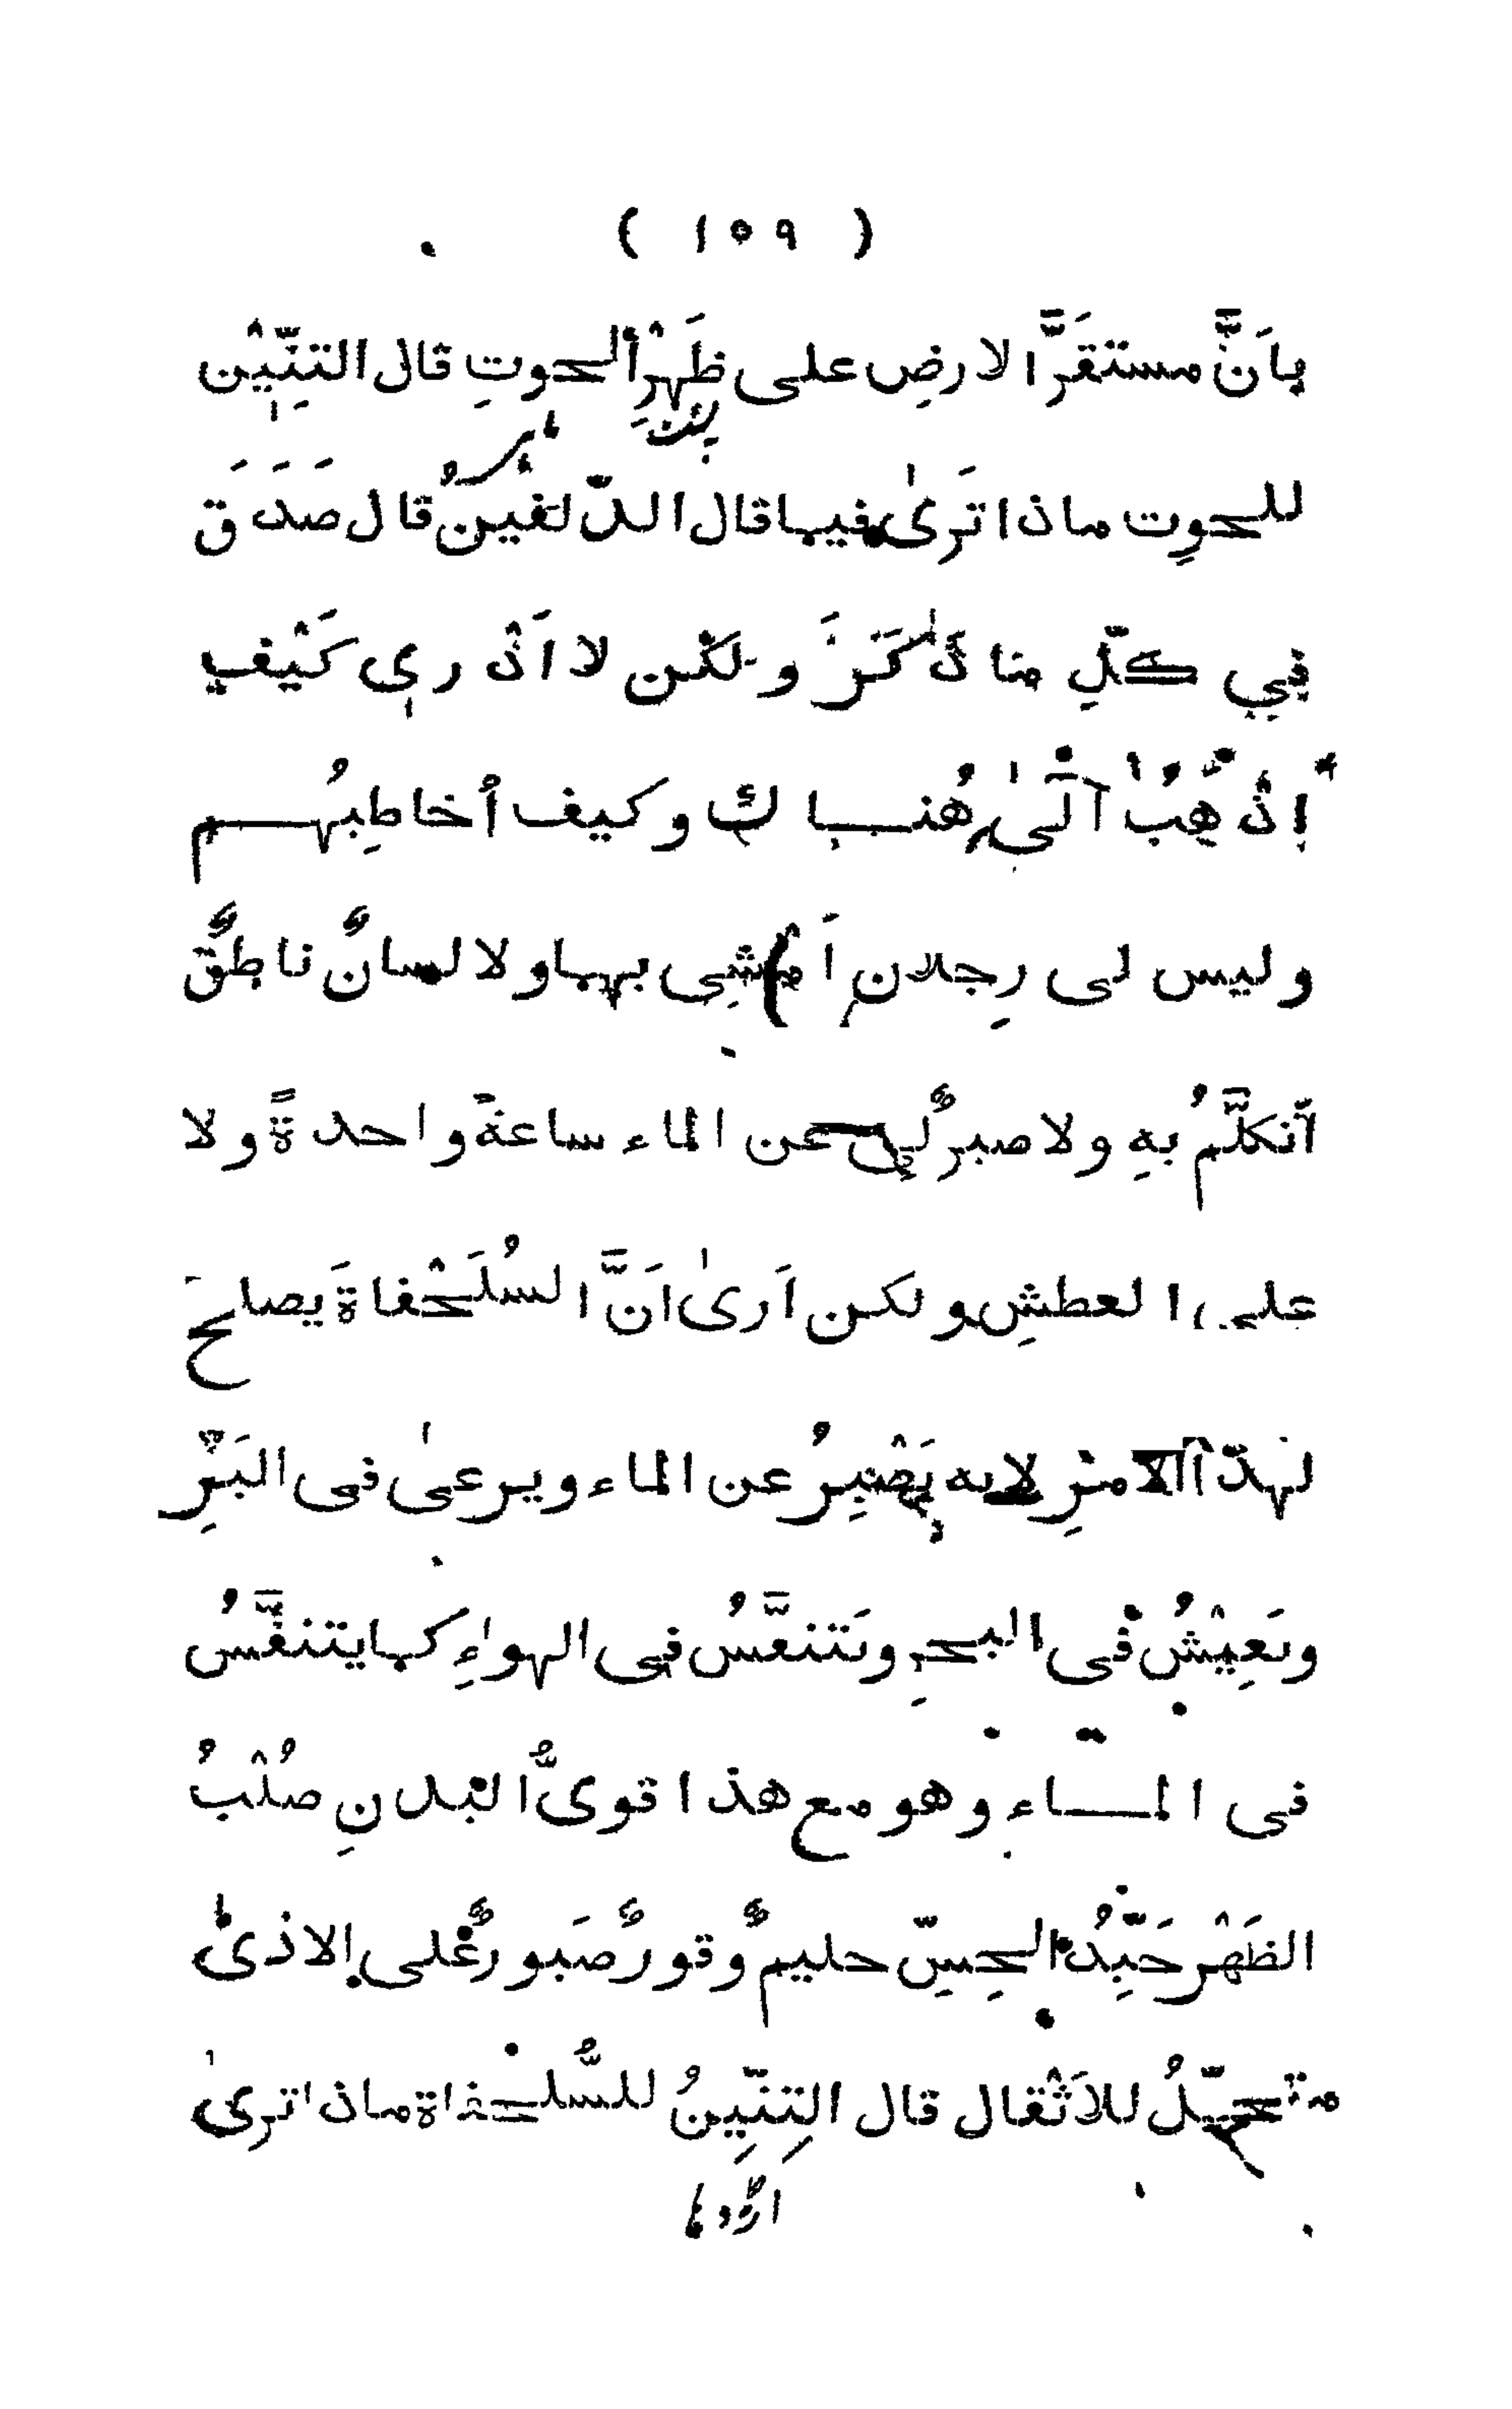 ( ١٥٩ )
بِاَنَّ مستقَرَّ الارضِ على ظَهْرِ ألحوتِ قال التِنِّيْن
للحوِت ماذا تَرىٰ فيما قال الدّلفيْنُ قال صَدَقَ
فِي كلِّ ما ذَكَرَ ولٰكن لا اَدْرِى كَيْفَ
اِذْهَبُ اَلىٰ هُنَاكَ وكيف أخاطِبُهم
وليس لى رِجلان اَمْشِى بهما ولا لسانٌ ناطقٌ
اَتكلَّمُ بهِ ولا صبرٌ لِى عن الماء ساعةً واحدةً ولا
على العطشِ ولكن اَرىٰ اَنَّ السُلَحْفاةَ يصلح
لهذَا الامْرِ لانه يَصْبِرُ عن الماء ويرعىٰ فى البَرِّ
وتَعِيْشُ فى البحرِ وتَتنفَّسُ فى الهواءِ كما يتنفَّسُ
فى الماء وهو مع هذا قوىُّ البدنِ صُلْبُ
الظَهْر جَيِّدُ الحِسِّ حليمٌ وقورٌ صَبورٌ على الاذىٰ
متحمِّلُ للاَثْقال قال التِنِّينُ للسُّلحفاة ماذا ترىٰ
اژدہا